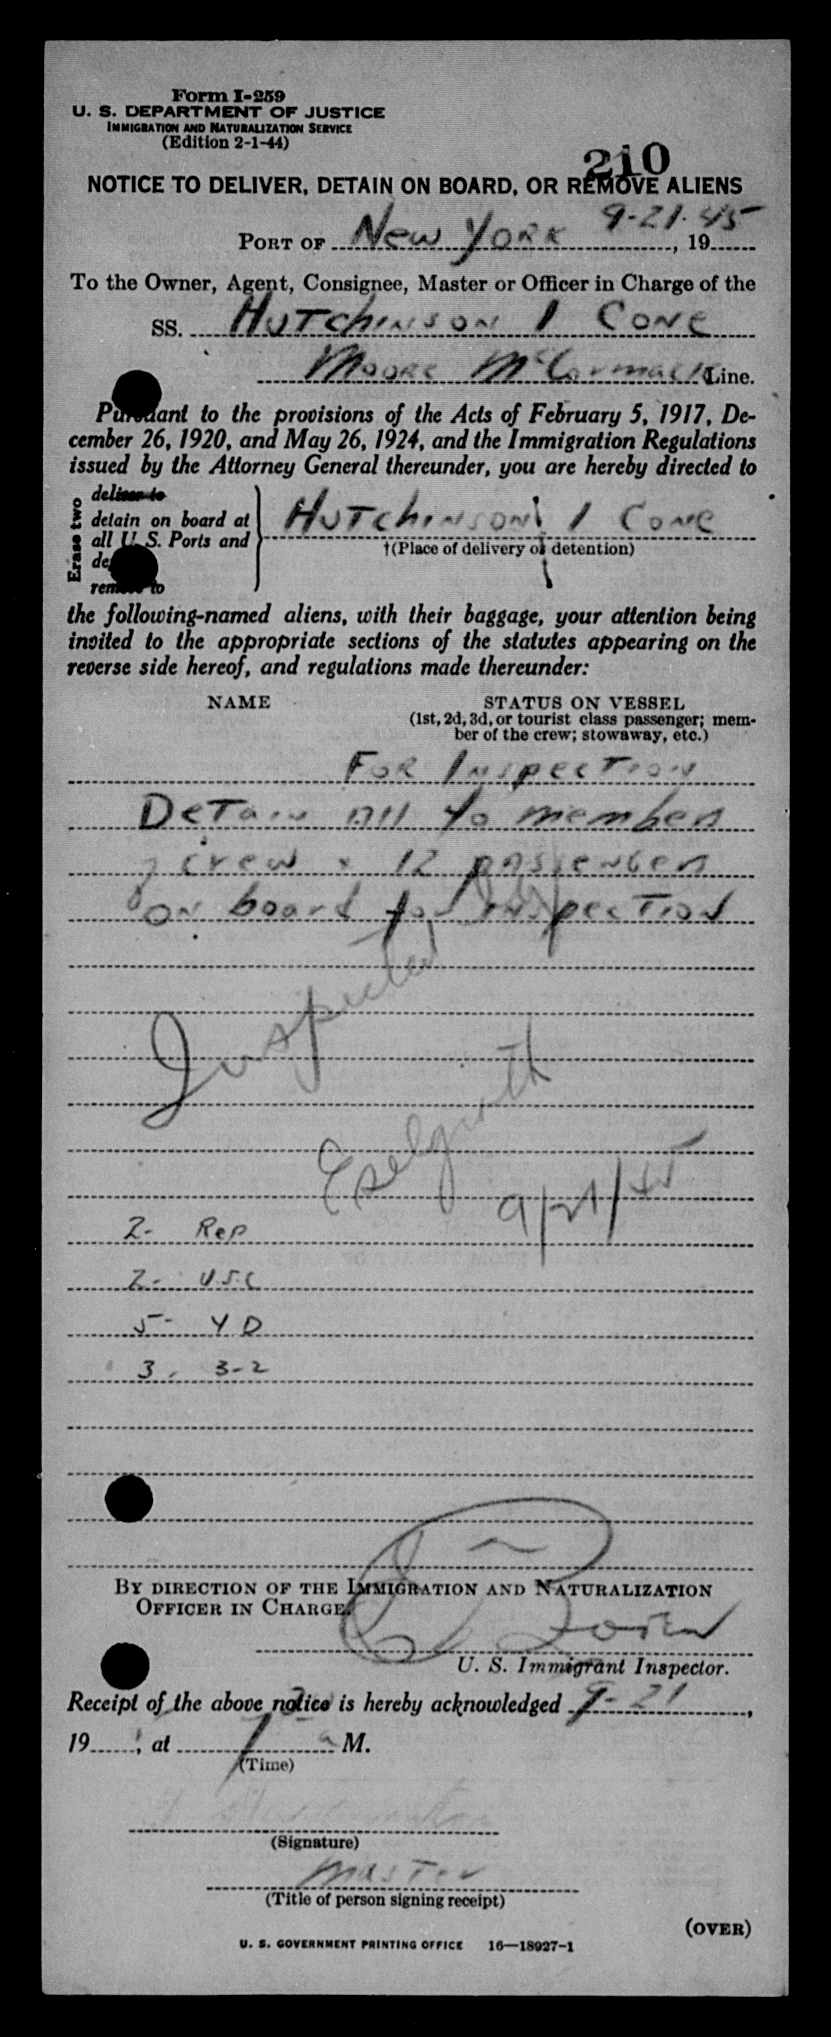 Form I-259
U. S. DEPARTMENT OF JUSTICE
IMMIGRATION AND NATURALIZATION SERVICE
(Edition 2-1-44)
210
NOTICE TO DELIVER, DETAIN ON BOARD, OR REMOVE ALIENS
9-21-45
PORT OF New York, 19
To the Owner, Agent, Consignee, Master or Officer in Charge of the
SS. Hutchinson I Cone
Moore McCormack Line.
Pursuant to the provisions of the Acts of February 5, 1917, De-
cember 26, 1920, and May 26, 1924, and the Immigration Regulations
issued by the Attorney General thereunder, you are hereby directed to
Erase two
deliver to
detain on board at
all U. S. Ports and
remove to
Hutchinson I Cone
†(Place of delivery or detention)
the following-named aliens, with their baggage, your attention being
invited to the appropriate sections of the statutes appearing on the
reverse side hereof, and regulations made thereunder:
NAME
STATUS ON VESSEL
(1st, 2d, 3d, or tourist class passenger; mem-
ber of the crew; stowaway, etc.)
For Inspection
Detain All 40 members
of crew & 12 passengers
on board for inspection
Inspected
9/21/45
2- Rep
2- U.S.C
5- YD
3. 3-2
BY DIRECTION OF THE IMMIGRATION AND NATURALIZATION
OFFICER IN CHARGE.
U. S. Immigrant Inspector.
Receipt of the above notice is hereby acknowledged 9-21,
19, at 7 a M.
(Time)
(Signature)
Master
(Title of person signing receipt)
(OVER)
U. S. GOVERNMENT PRINTING OFFICE 16—18927-1